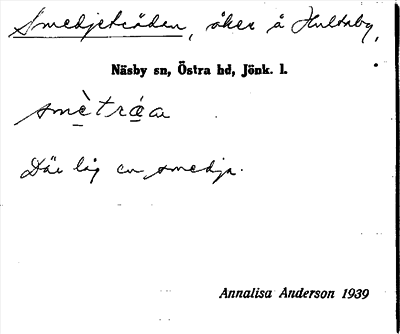 Smedjeträden, åker å Hultaby,
Näsby sn, Östra hd, Jönk. l.
smètráa
Där låg en smedja.
Annalisa Anderson 1939